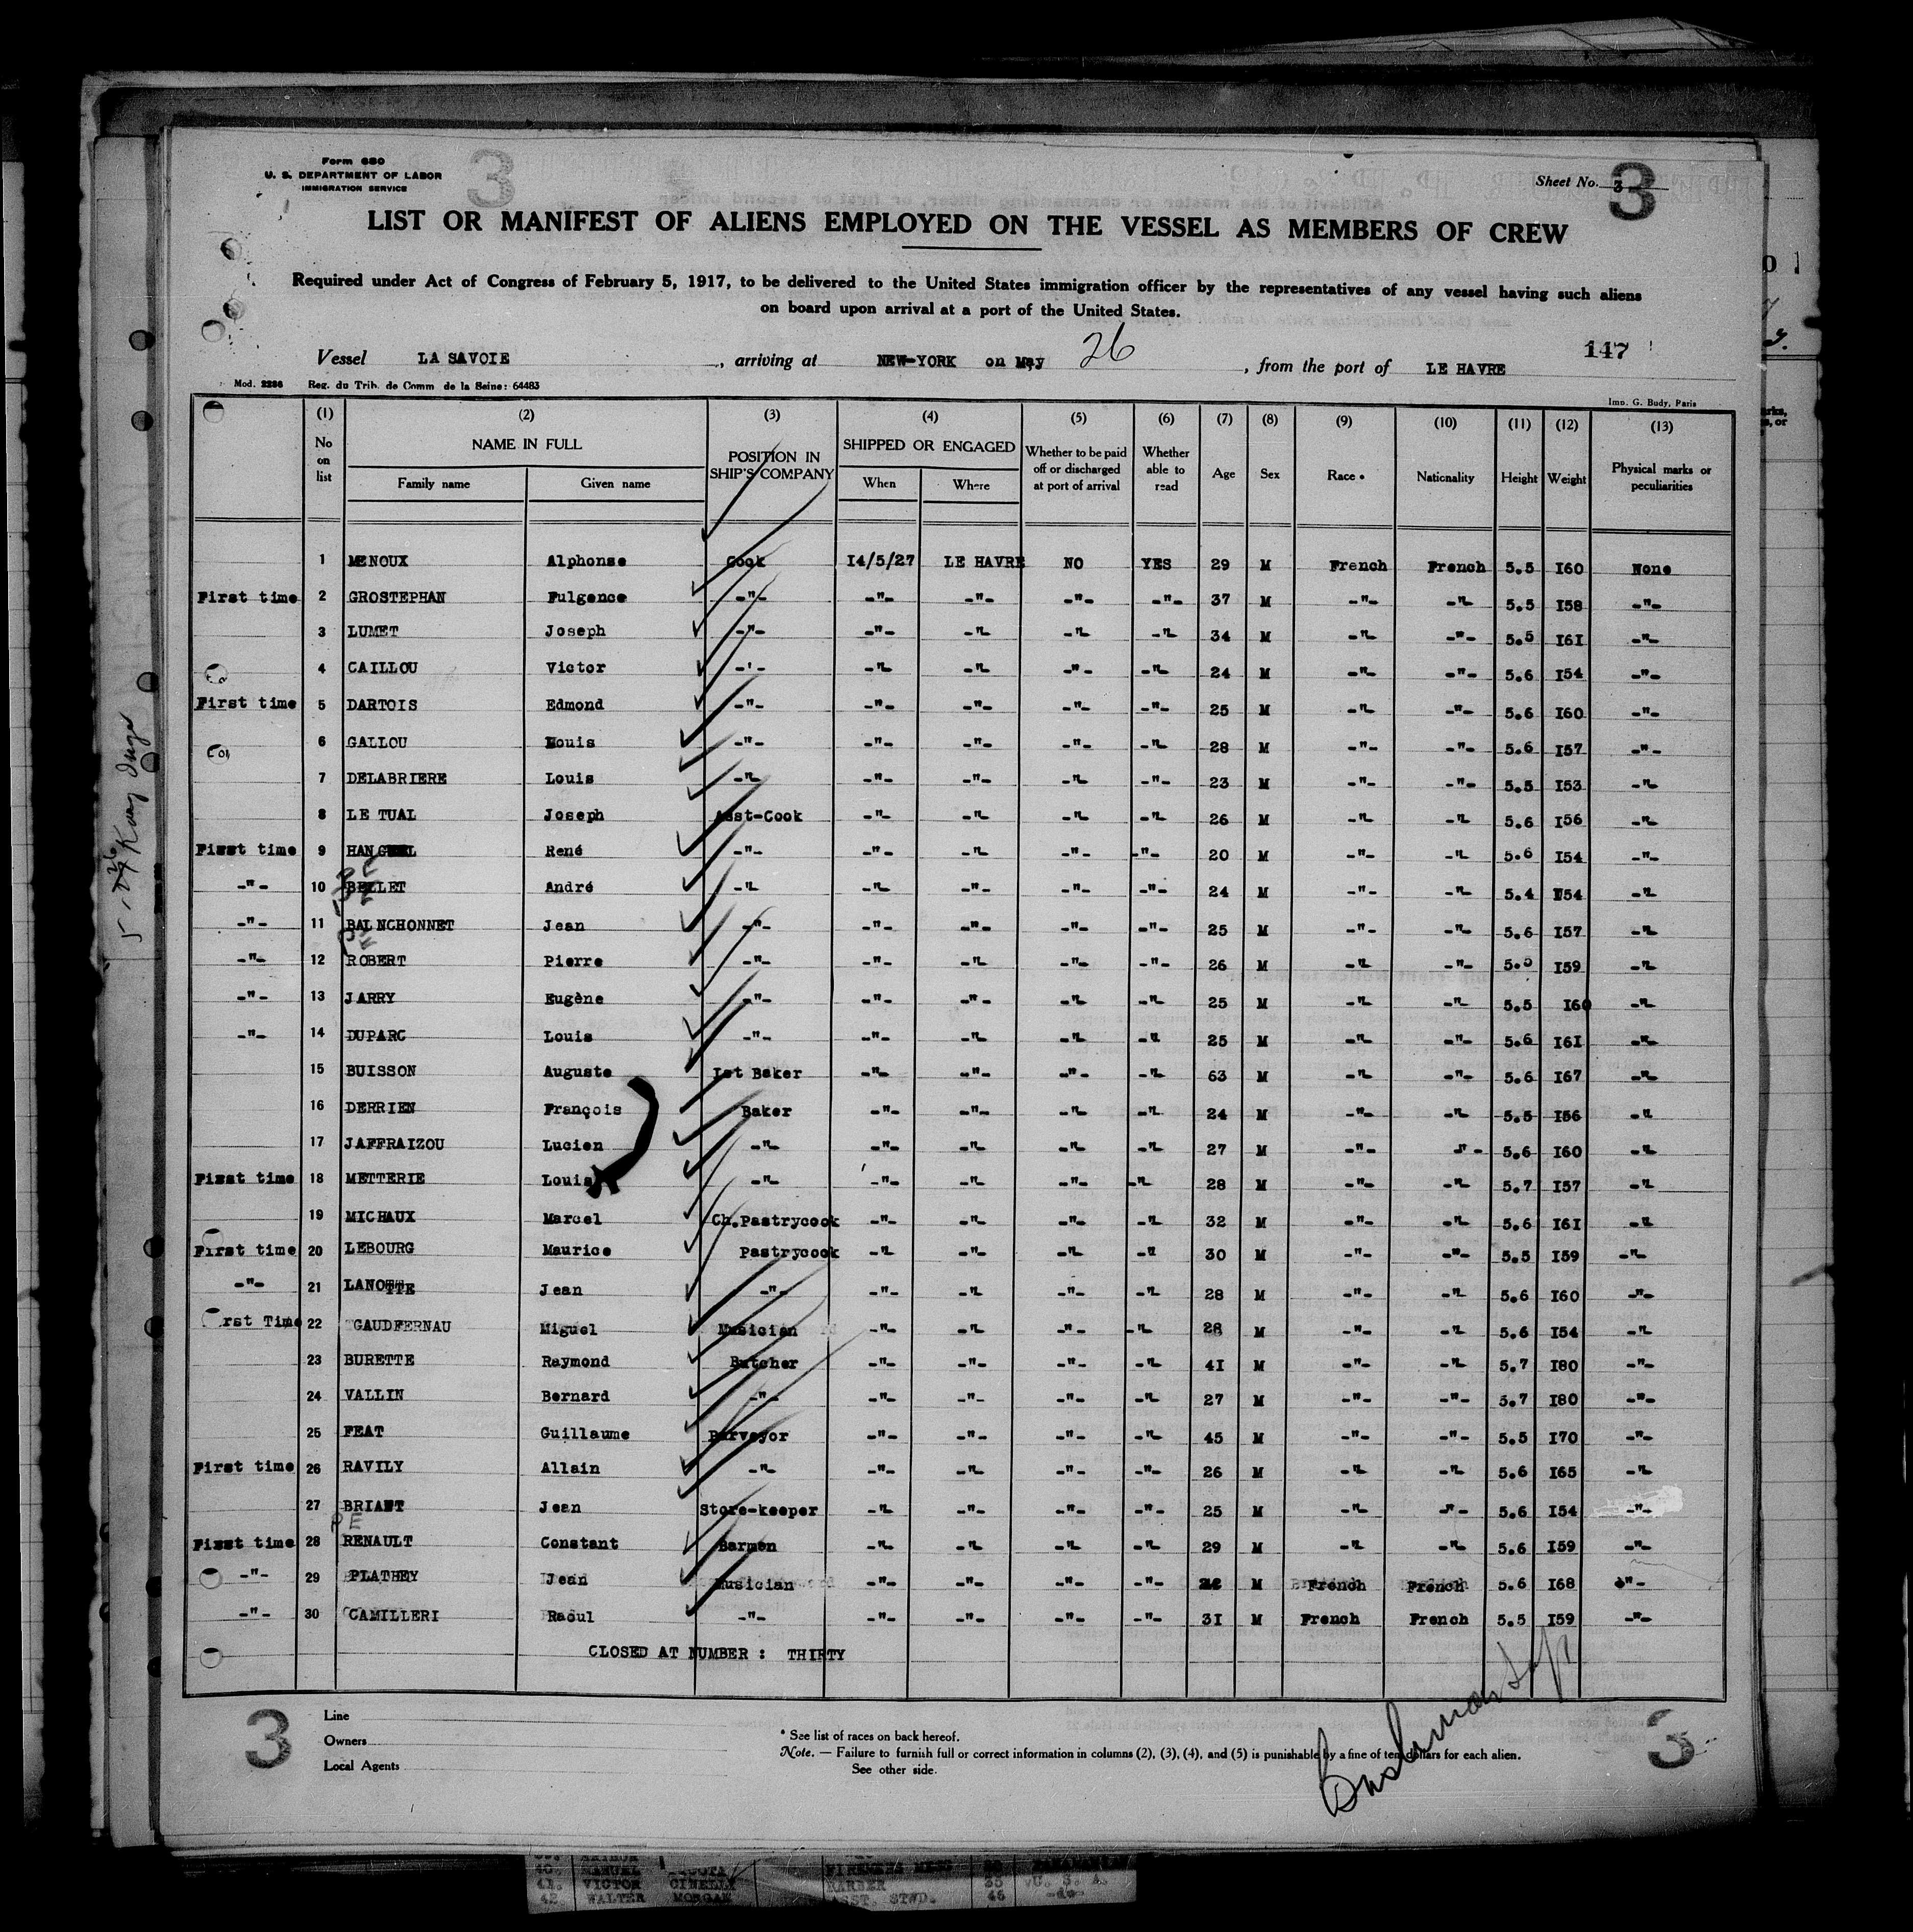 Form 680
U. S. DEPARTMENT OF LABOR
IMMIGRATION SERVICE
3
Sheet No. 3
3
LIST OR MANIFEST OF ALIENS EMPLOYED ON THE VESSEL AS MEMBERS OF CREW
Required under Act of Congress of February 5, 1917, to be delivered to the United States immigration officer by the representatives of any vessel having such aliens
on board upon arrival at a port of the United States.
Vessel LA SAVOIE, arriving at NEW-YORK on May 26, from the port of LE HAVRE
147
Mod. 2286 Reg. du Trib. de Comm de la Seine: 64483
Imp. G. Budy, Paris
(1) (2) (3) (4) (5) (6) (7) (8) (9) (10) (11) (12) (13)
No on list NAME IN FULL Family name Given name POSITION IN SHIP'S COMPANY SHIPPED OR ENGAGED When Where Whether to be paid off or discharged at port of arrival Whether able to read Age Sex Race * Nationality Height Weight Physical marks or peculiarities
1 MENOUX Alphonse Cook 14/5/27 LE HAVRE NO YES 29 M French French 5.5 160 None
First time 2 GROSTEPHAN Fulgence -"- -"- -"- -"- -"- 37 M -"- -"- 5.5 158 -"-
3 LUMET Joseph -"- -"- -"- -"- -"- 34 M -"- -"- 5.5 161 -"-
4 CAILLOU Victor -'- -"- -"- -"- -"- 24 M -"- -"- 5.6 154 -"-
First time 5 DARTOIS Edmond -"- -"- -"- -"- -"- 25 M -"- -"- 5.6 160 -"-
6 GALLOU Louis -"- -"- -"- -"- -"- 28 M -"- -"- 5.6 157 -"-
7 DELABRIERE Louis -"- -"- -"- -"- -"- 23 M -"- -"- 5.5 153 -"-
8 LE TUAL Joseph Asst-Cook -"- -"- -"- -"- 26 M -"- -"- 5.6 156 -"-
First time 9 René -"- -"- -"- -"- -"- 20 M -"- -"- 5.6 154 -"-
-"- 10 BELLET André -"- -"- -"- -"- -"- 24 M -"- -"- 5.4 154 -"-
-"- 11 BALNCHONNET Jean -"- -"- -"- -"- -"- 25 M -"- -"- 5.6 157 -"-
-"- 12 ROBERT Pierre -"- -"- -"- -"- -"- 26 M -"- -"- 159 -"-
-"- 13 JARRY Eugène -"- -"- -"- -"- -"- 25 M -"- -"- 5.5 160 -"-
-"- 14 DUPARC Louis -"- -"- -"- -"- -"- 25 M -"- -"- 5.6 161 -"-
15 BUISSON Auguste 1st Baker -"- -"- -"- -"- 63 M -"- -"- 5.6 167 -"-
16 DERRIEN François Baker -"- -"- -"- -"- 24 M -"- -"- 5.5 156 -"-
17 JAFFRAIZOU Lucien -"- -"- -"- -"- -"- 27 M -"- -"- 5.6 160 -"-
First time 18 METTERIE Louis -"- -"- -"- -"- -"- 28 M -"- -"- 5.7 157 -"-
19 MICHAUX Marcel Ch.Pastrycook -"- -"- -"- -"- 32 M -"- -"- 5.6 161 -"-
First time 20 LEBOURG Maurice Pastrycook -"- -"- -"- -"- 30 M -"- -"- 5.5 159 -"-
-"- 21 LANOTTE Jean -"- -"- -"- -"- -"- 28 M -"- -"- 5.6 160 -"-
First Time 22 GAUDFERNAU Miguel Musician -"- -"- -"- -"- 28 M -"- -"- 5.6 154 -"-
23 BURETTE Raymond Butcher -"- -"- -"- -"- 41 M -"- -"- 5.7 180 -"-
24 VALLIN Bernard -"- -"- -"- -"- -"- 27 M -"- -"- 5.7 180 -"-
25 FEAT Guillaume Purveyor -"- -"- -"- -"- 45 M -"- -"- 5.5 170 -"-
First time 26 RAVILY Allain -"- -"- -"- -"- -"- 26 M -"- -"- 5.6 165 -"-
27 BRIANT Jean Store-keeper -"- -"- -"- -"- 25 M -"- -"- 5.6 154 -"-
First time 28 RENAULT Constant Barmen -"- -"- -"- -"- 29 M -"- -"- 5.6 159 -"-
-"- 29 PLATHEY Jean Musician -"- -"- -"- -"- M French French 5.6 168 -"-
-"- 30 CAMILLERI Raoul -"- -"- -"- -"- -"- 31 M French French 5.5 159 -"-
CLOSED AT NUMBER : THIRTY
3
Line
Owners
Local Agents
* See list of races on back hereof.
Note. — Failure to furnish full or correct information in columns (2), (3), (4), and (5) is punishable by a fine of ten dollars for each alien.
See other side.
3
40. MANUEL FIREMENS MESS
41. VICTOR CINELLI BARBER 35 U. S. A.
42. WALTER MORGAN ASST. STWD. 46 -do-